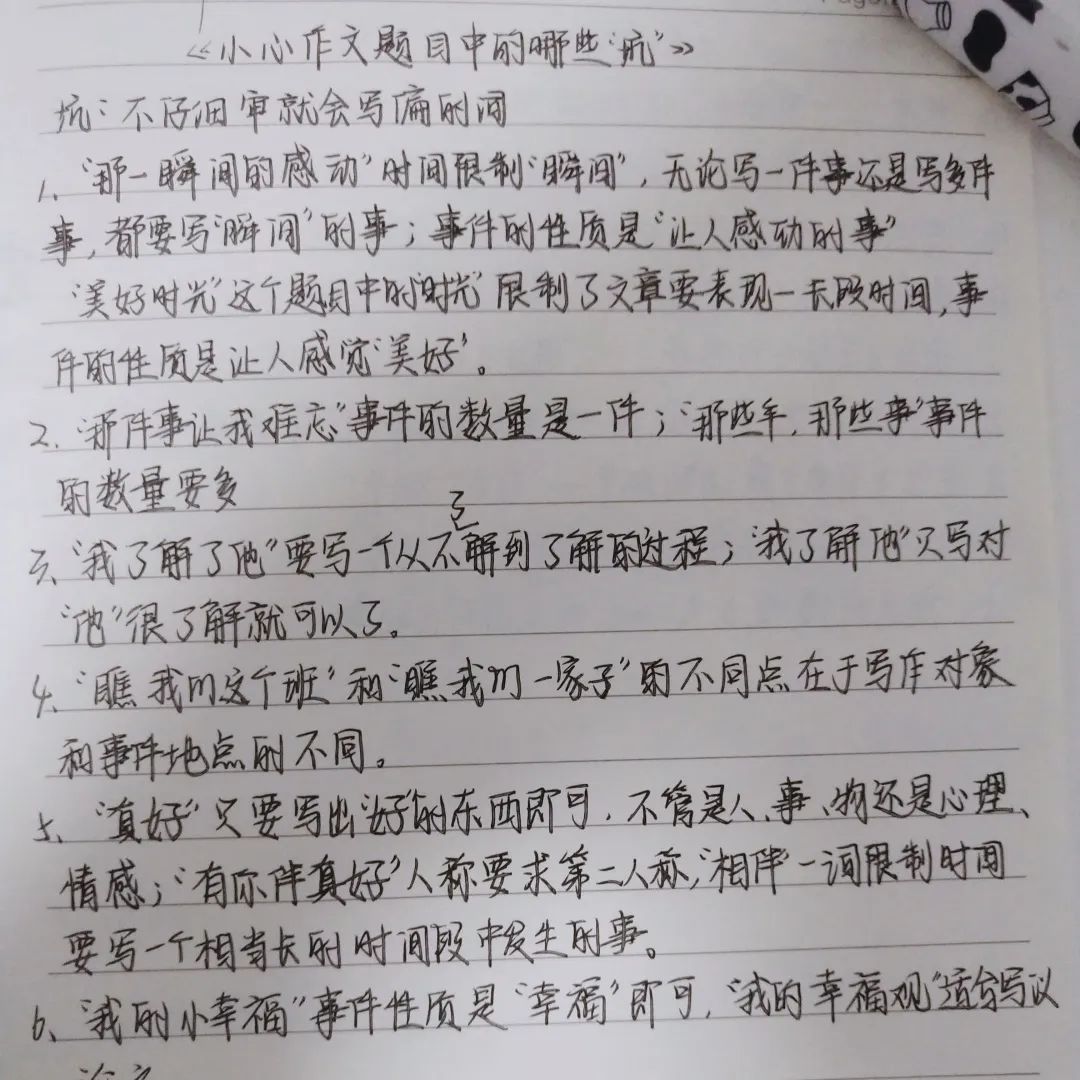 《小心作文题目中的哪些"坑"》
坑：不仔细审就会写偏的词
1、"那一瞬间的感动"时间限制"瞬间"，无论写一件事还是写多件
事，都要写"瞬间"的事；事件的性质是"让人感动的事"
"美好时光"这个题目中的"时光"限制了文章要表现一长段时间，事
件的性质是让人感觉"美好"。
2、"那件事让我难忘"事件的数量是一件；"那些年，那些事"事件
的数量要多
了
3、"我了解了他"要写一个从不解到了解的过程；"我了解他"只写对
"他"很了解就可以了。
4、"瞧我们这个班"和"瞧我们一家子"的不同点在于写作对象
和事件地点的不同。
5、"真好"只要写出"好"的东西即可，不管是人、事、物还是心理、
情感；"有你伴真好"人称要求第二人称，"相伴"一词限制时间
要写一个相当长的时间段中发生的事。
6、"我的小幸福"事件性质是"幸福"即可，"我的幸福观"适合写议